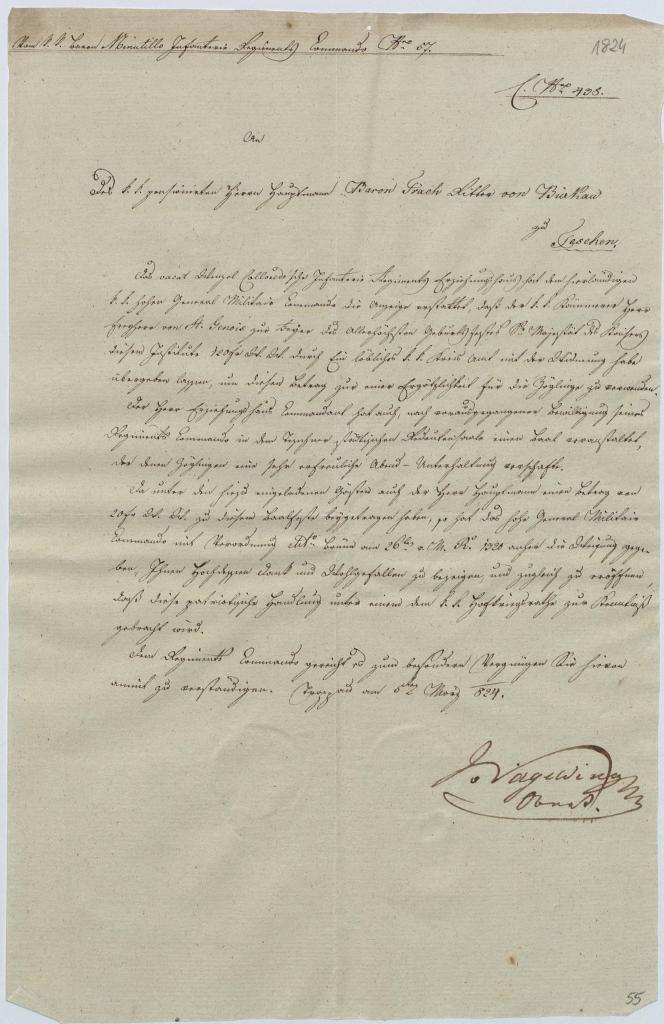 Von k. k. Baron Minutillo Infanterie Regiments Commando Nro 57.
1824
C. Nro 438.
An
Des k. k. pensionirten Herrn Hauptmann Baron Trach Ritter von Birkau
zu
Teschen.
Das vacat Wenzel Colloredo'sche Infanterie Regiments Erziehungshaus hat dem hierländigen
k. k. hohen General Militair Commando die Anzeige erstattet, daß der k. k. Kämmerer Herr
Freyherr von St. Genois zur Feyer des Allerhöchsten Geburtsfestes Sr Majestät des Kaisers
diesem Institute 120 fr W. W. durch Ein löbliches k. k. Kreis Amt mit der Widmung habe
übergeben lassen, um diesen Betrag zur einer Ergötzlichkeit für die Zöglinge zu verwenden.
Der Herr Erziehungshaus Commandant hat auch, nach vorausgegangener Bewilligung seines
Regiments Commando in dem Teschner städtischen Redoutensaale einen Baal veranstaltet,
der denen Zöglingen eine sehr erfreuliche Abend-Unterhaltung verschafte.
Da unter den hiezu eingeladenen Gästen auch der Herr Hauptmann einen Betrag von
20 fr W. W. zu diesem Baalfeste beygetragen haben, so hat das hohe General Militair
Commando mit Verordnung Brünn am 26ten v. M. anher die Weisung gege-
ben, Ihnen Hochdessen Dank und Wohlgefallen zu bezeigen, und zugleich zu eröffnen,
daß diese patriotische Handlung unter einem dem k. k. Hofkriegsrathe zur Kenntniß
gebracht wird.
Dem Regiments Commando gereicht es zum besondern Vergnügen Sie hievon
anmit zu verständigen. Troppau am 5ten März 824.
Obrist.
55